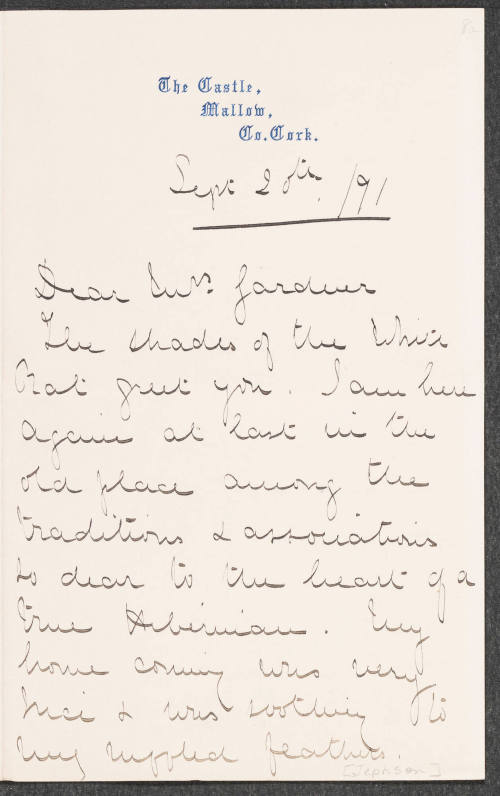 The Castle,
Mallow,
Co. Cork.
Sept 20th /91
Dear Mrs Gardner
The shades of the White
Rat greet you. I am here
again at last in the
old place among the
traditions & associations
so dear to the heart of a
true Hibernian. My
home coming was very
nice & was soothing to
my ruffled feathers.
[Jephson]